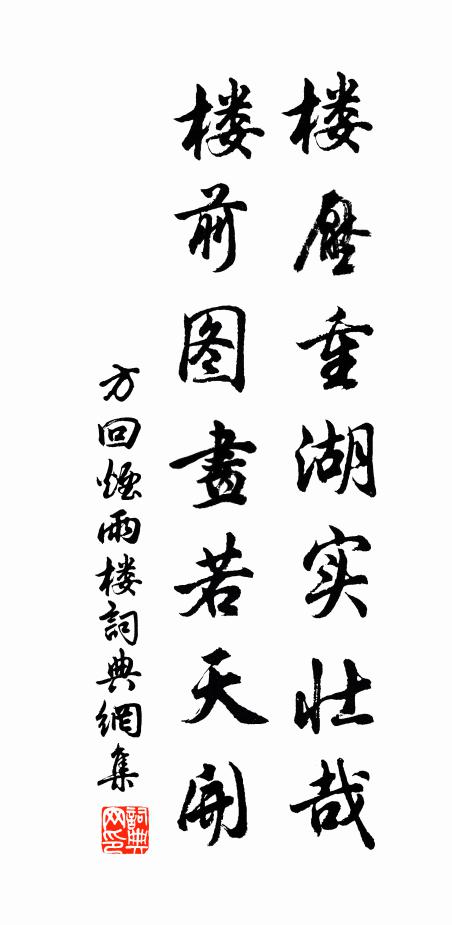 楼壓重湖实壮哉
楼前图畫若天開
方回煙雨楼詞典網集
詞典網印